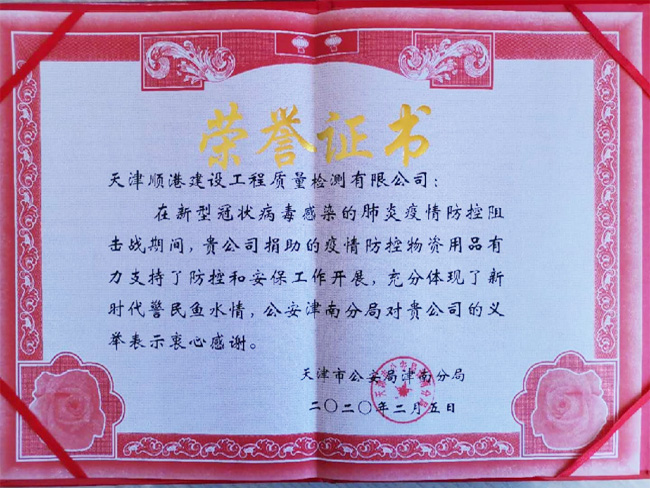 荣誉证书
天津顺港建设工程质量检测有限公司：
在新型冠状病毒感染的肺炎疫情防控阻
击战期间，贵公司捐助的疫情防控物资用品有
力支持了防控和安保工作开展，充分体现了新
时代警民鱼水情，公安津南分局对贵公司的义
举表示衷心感谢。
天津市公安局津南分局
二〇二〇年二月五日